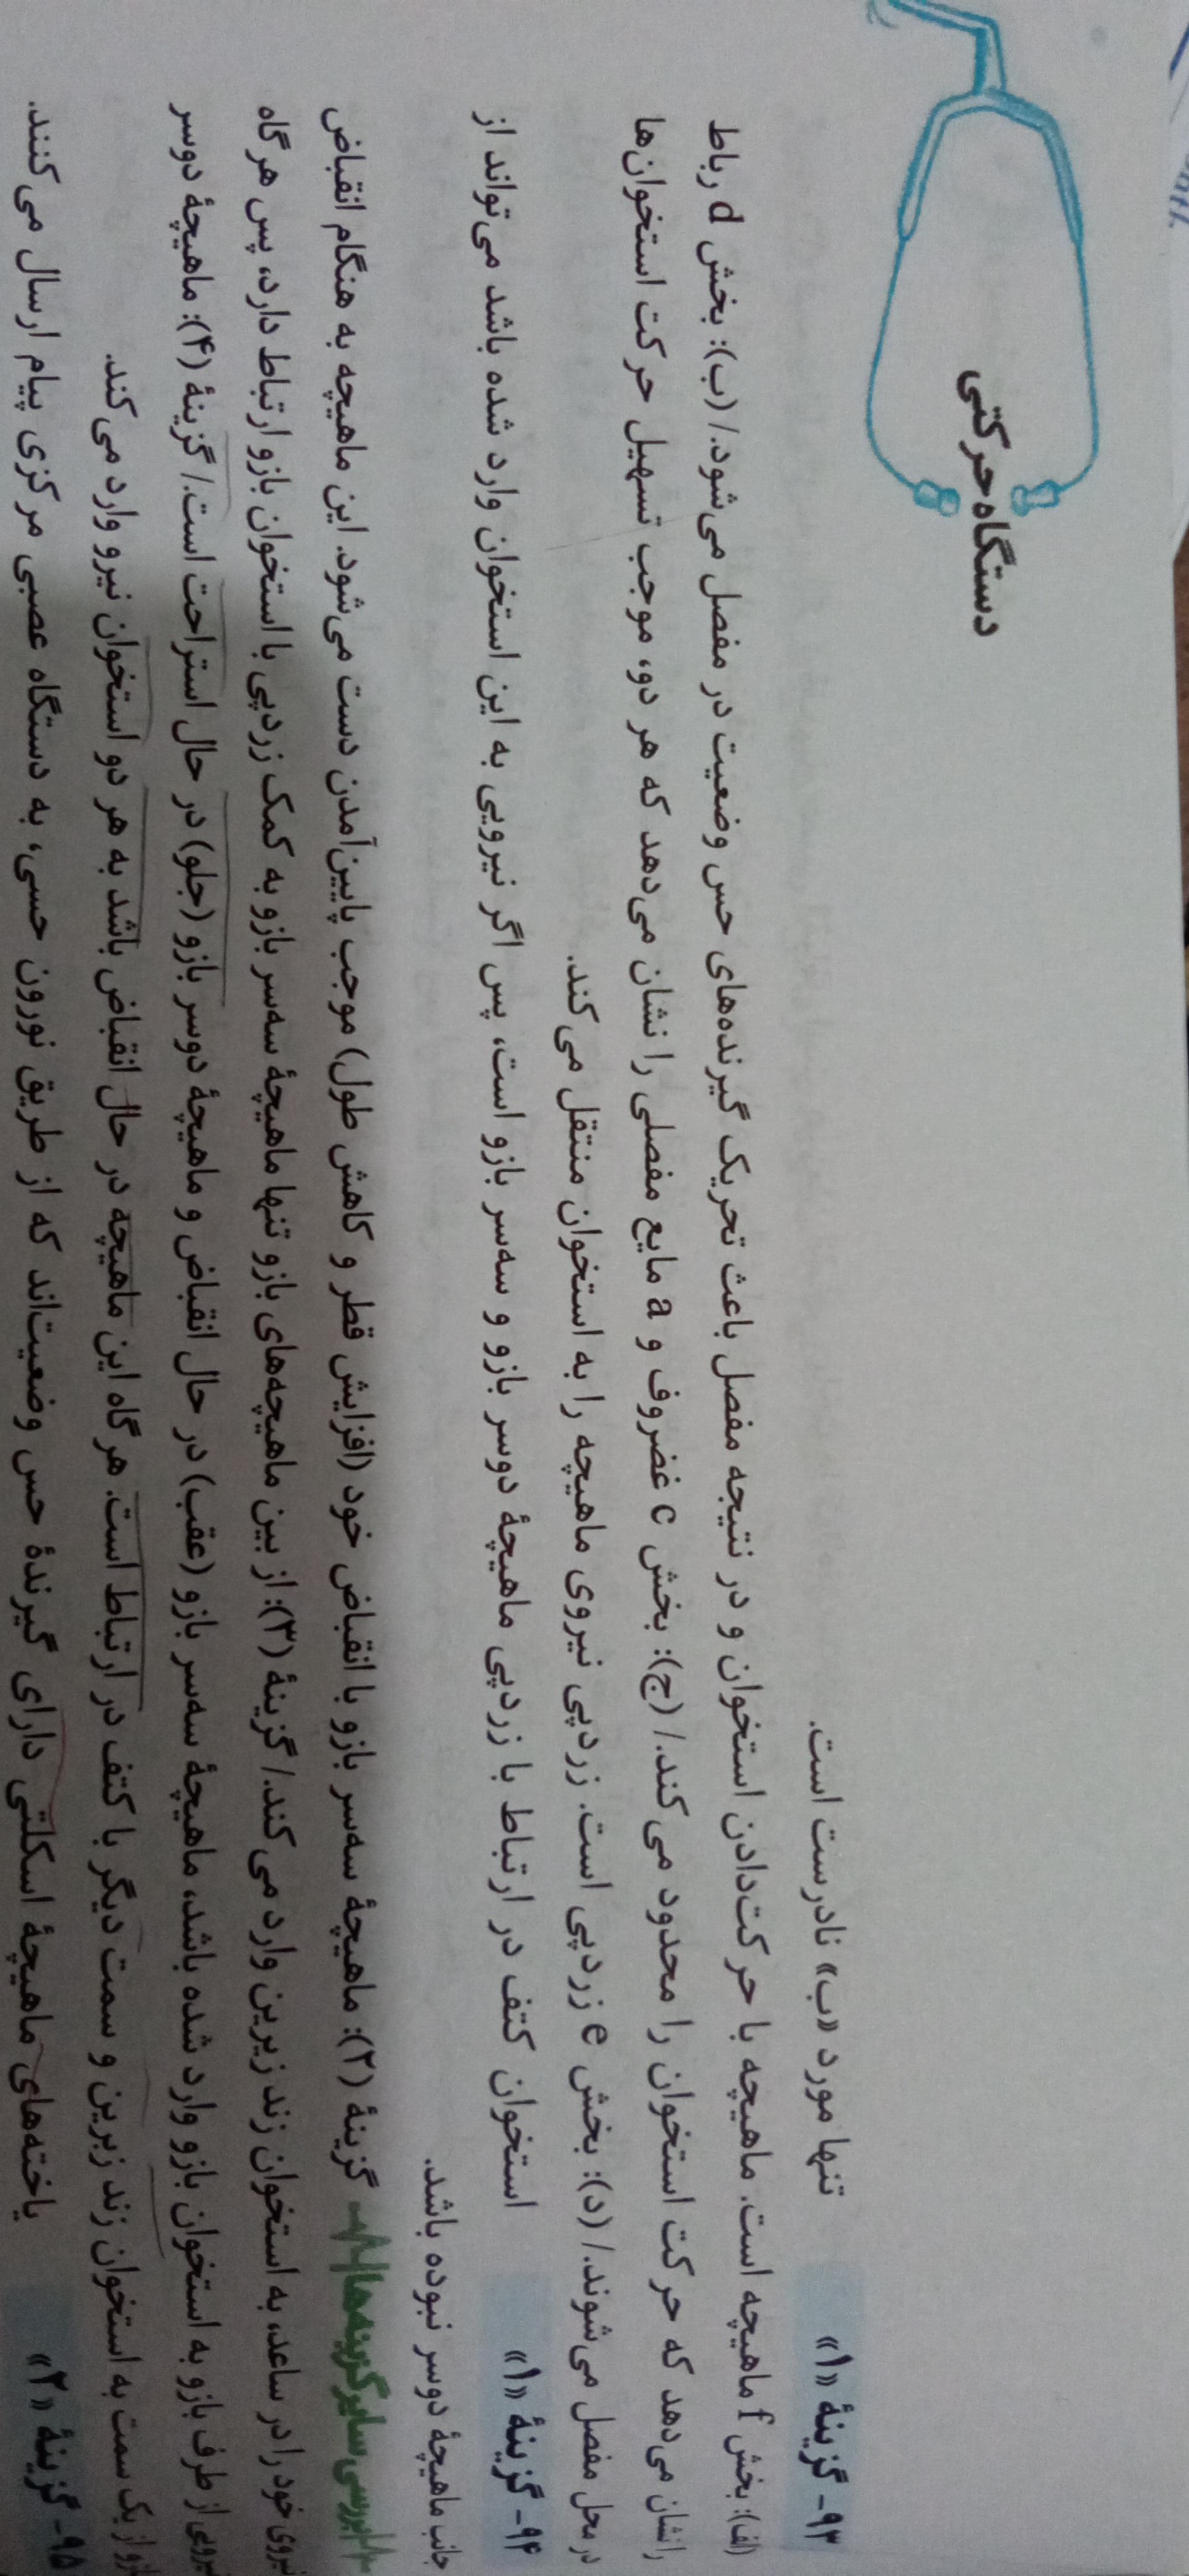 دستگاه حرکتی
۹۳- گزینهٔ «۱» تنها مورد «ب» نادرست است.
(الف): بخش f ماهیچه است. ماهیچه با حرکت‌دادن استخوان و در نتیجه مفصل باعث تحریک گیرنده‌های حس وضعیت در مفصل می‌شود. / (ب): بخش d رباط
را نشان می‌دهد که حرکت استخوان را محدود می‌کند. / (ج): بخش c غضروف و a مایع مفصلی را نشان می‌دهد که هر دو، موجب تسهیل حرکت استخوان‌ها
در محل مفصل می‌شوند. / (د): بخش e زردپی است. زردپی نیروی ماهیچه را به استخوان منتقل می‌کند.
۹۴- گزینهٔ «۱» استخوان کتف در ارتباط با زردپی ماهیچهٔ دوسر بازو و سه‌سر بازو است، پس اگر نیرویی به این استخوان وارد شده باشد می‌تواند از
جانب ماهیچهٔ دوسر نبوده باشد.
بررسی سایر گزینه‌ها گزینهٔ (۲): ماهیچهٔ سه‌سر بازو با انقباض خود (افزایش قطر و کاهش طول) موجب پایین‌آمدن دست می‌شود. این ماهیچه به هنگام انقباض
نیروی خود را در ساعد، به استخوان زند زیرین وارد می‌کند. / گزینهٔ (۳): از بین ماهیچه‌های بازو تنها ماهیچهٔ سه‌سر بازو به کمک زردپی با استخوان بازو ارتباط دارد، پس هرگاه
نیرویی از طرف بازو به استخوان بازو وارد شده باشد، ماهیچهٔ سه‌سر بازو (عقب) در حال انقباض و ماهیچهٔ دوسر بازو (جلو) در حال استراحت است. / گزینهٔ (۴): ماهیچهٔ دوسر
بازو از یک سمت به استخوان زند زبرین و سمت دیگر با کتف در ارتباط است. هرگاه این ماهیچه در حال انقباض باشد به هر دو استخوان نیرو وارد می‌کند.
۹۵- گزینهٔ «۲» یاخته‌های ماهیچهٔ اسکلتی دارای گیرندهٔ حس وضعیت‌اند که از طریق نورون حسی، به دستگاه عصبی مرکزی پیام ارسال می‌کنند.